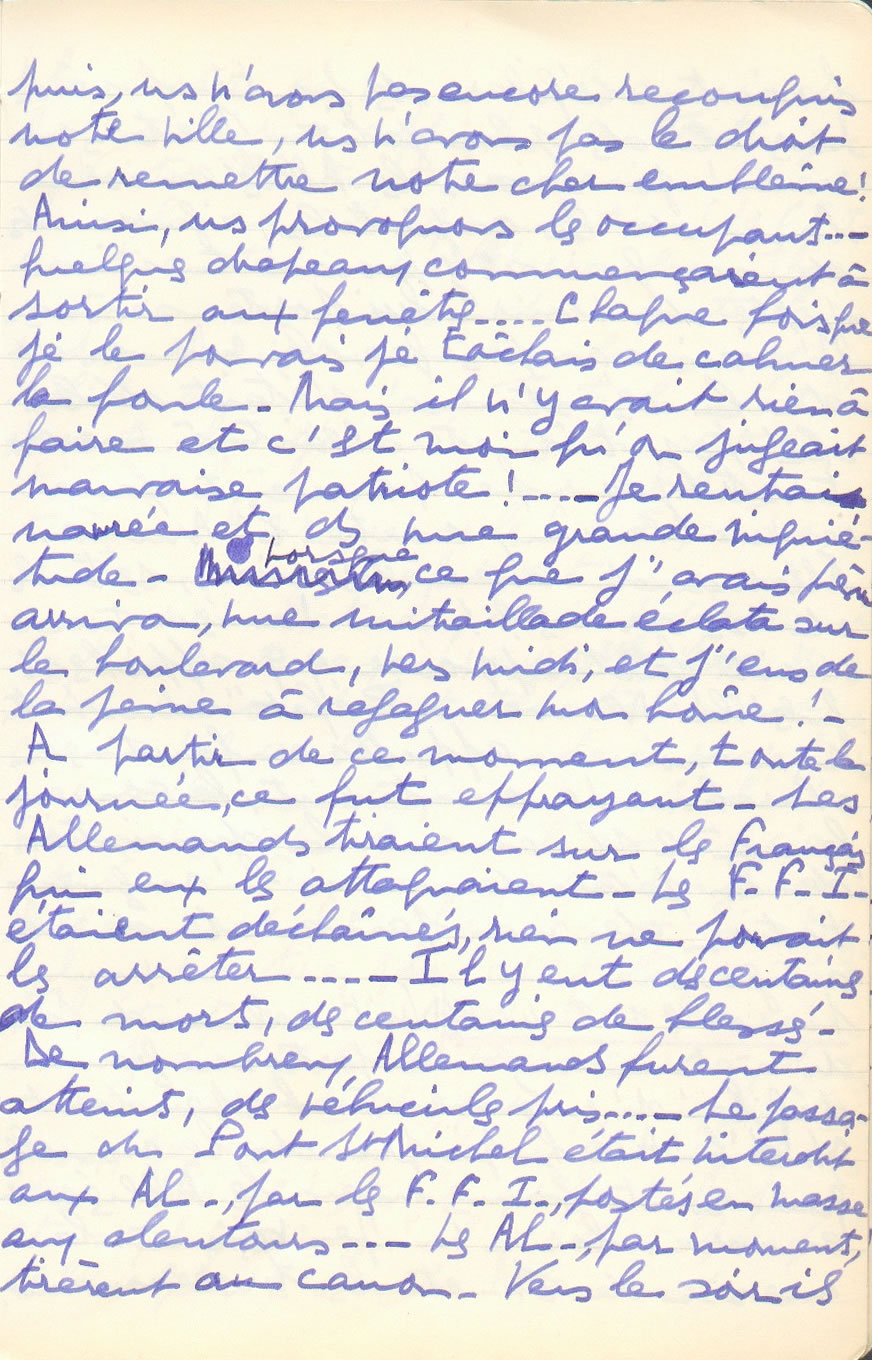 puis, ns n'avons pas encore reconquis
notre ville, ns n'avons pas le droit
de remettre notre cher emblème!
Ainsi, ns provoquons les occupants...
quelques drapeaux commençaient à
sortir aux fenêtres.... Chaque fois que
je le pouvais je tâchais de calmer
la foule - Mais il n'y avait rien à
faire et c'est moi qu'on jugeait
mauvaise patriote! .... Je rentrais
navrée et ds une grande inquié-
tude - Lorsque ce que j'avais prévu
arriva, une mitraillade éclata sur
le boulevard, vers midi, et j'eus de
la peine à regagner mon home! -
A partir de ce moment, toute la
journée, ce fut effrayant - Les
Allemands tiraient sur les Français
qui eux les attaquaient - Les F.F.I.
étaient déchaînés, rien ne pouvait
les arrêter .... Il y eut des centaines
de morts, des centaines de blessés -
De nombreux Allemands furent
atteints, des véhicules pris.... Le passa-
ge du Pont St Michel était interdit
aux Al-, par les F.F.I., postés en masse
aux alentours ... Les Al-, par moments,
tirèrent au canon - Vers le soir ils